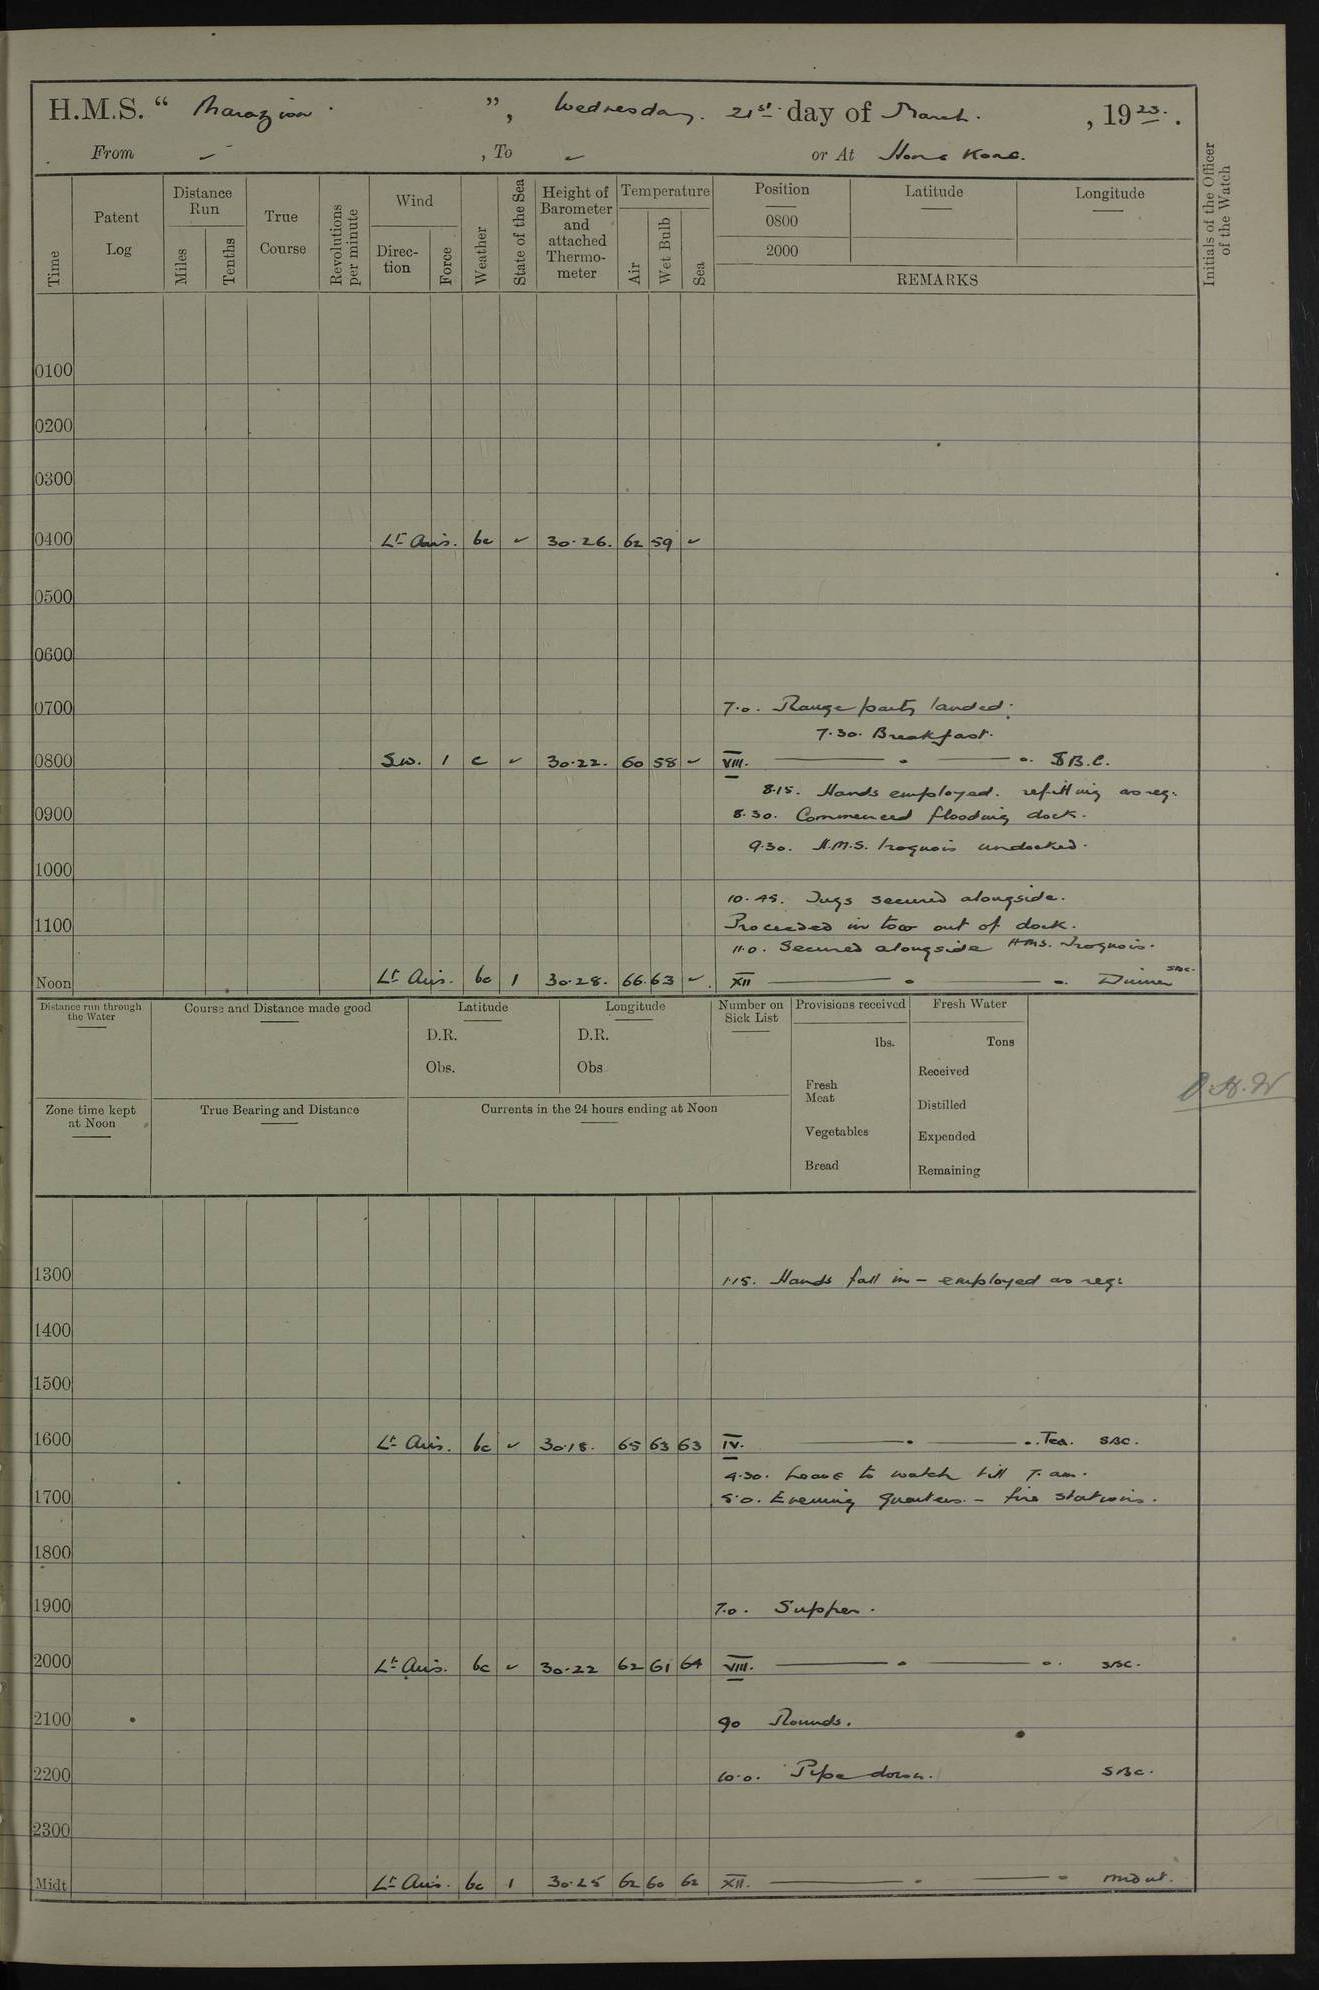 H.M.S. “ Marazion ”, Wednesday. 21st day of March. , 1923.
From ✓ , To ✓ or At Hong Kong.
Time
Patent Log
Distance Run
Miles
Tenths
True Course
Revolutions per minute
Wind
Direction
Force
Weather
State of the Sea
Height of Barometer and attached Thermometer
Temperature
Air
Wet Bulb
Sea
Position
0800
2000
Latitude
Longitude
REMARKS
Initials of the Officer of the Watch
0100
0200
0300
0400 Lt Airs. bc ✓ 30.26. 62 59 ✓
0500
0600
0700 7.0. Range party landed.
7.30. Breakfast.
0800 SW. 1 c ✓ 30.22. 60 58 ✓ VIII. S.B.C.
8.15. Hands employed. refitting as req.
0900 8.30. Commenced flooding dock.
9.30. H.M.S. Iroquois undocked.
1000
10.45. Tugs secured alongside.
1100 Proceeded in tow out of dock.
11.0. Secured alongside HMS. Iroquois.
Noon Lt Airs. bc 1 30.28. 66. 63 ✓ XII Dinner SBC.
Distance run through the Water
Course and Distance made good
Latitude
D.R.
Obs.
Longitude
D.R.
Obs
Number on Sick List
Provisions received
lbs.
Fresh Meat
Vegetables
Bread
Fresh Water
Tons
Received
Distilled
Expended
Remaining
Zone time kept at Noon
True Bearing and Distance
Currents in the 24 hours ending at Noon
1300 1.15. Hands fall in – employed as req:
1400
1500
1600 Lt Airs. bc ✓ 30.18. 65 63 63 IV. Tea. SBC.
4.30. Leave to watch till 7. am.
1700 5.0. Evening Quarters. – fire stations.
1800
1900 7.0. Supper.
2000 Lt Airs. bc ✓ 30.22 62 61 64 VIII. SBC.
2100 90 Rounds.
2200 10.0. Pipe down. SBC.
2300
Midt Lt Airs. bc 1 30.25 62 60 62 XII.